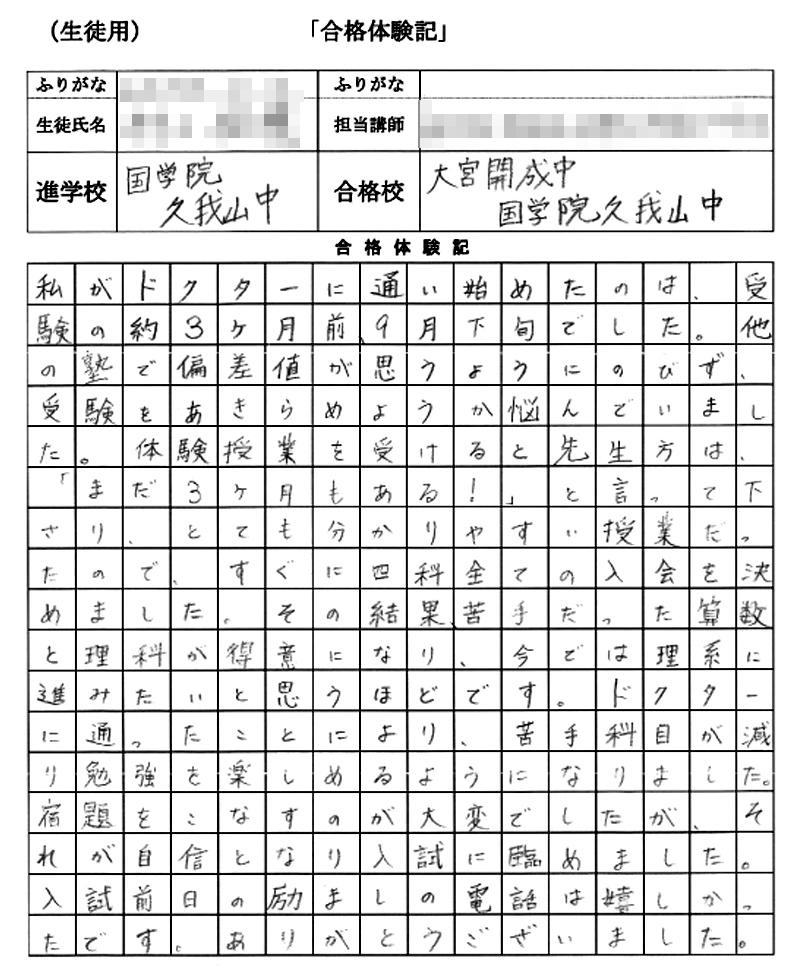 (生徒用) 「合格体験記」
ふりがな ふりがな
生徒氏名 担当講師
進学校 国学院久我山中 合格校 大宮開成中 国学院久我山中
合格体験記
私がドクターに通い始めたのは、受
験の約3ケ月前、9月下旬でした。他
の塾で偏差値が思うようにのびず、
受験をあきらめようか悩んでいまし
た。体験授業を受けると先生方は、
「まだ3ケ月もある!」と言って下
さり、とても分かりやすい授業だっ
たので、すぐに四科全ての入会を決
めました。その結果、苦手だった算数
と理科が得意になり、今では理系に
進みたいと思うほどです。ドクター
に通ったことにより、苦手科目が減
り勉強を楽しめるようになりました。
宿題をこなすのが大変でしたが、そ
れが自信となり入試に臨めました。
入試前日の励ましの電話は嬉しかっ
たです。ありがとうございました。